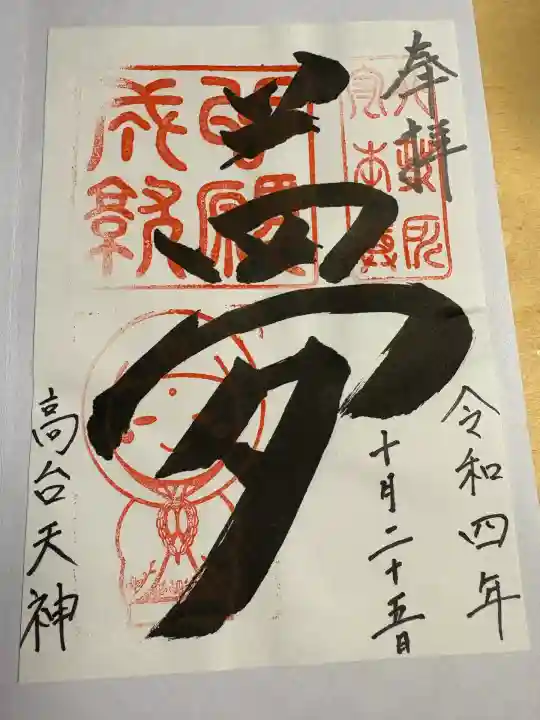 奉拝
令和四年
十月二十五日
夢
高台天神